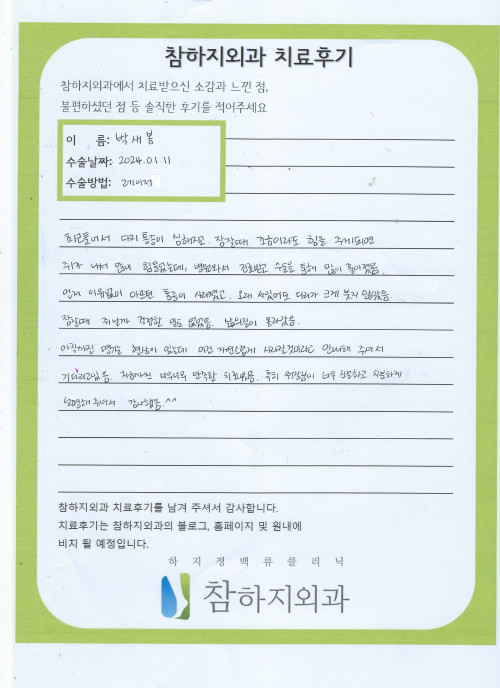 참하지외과 치료후기
참하지외과에서 치료받으신 소감과 느낀 점,
불편하셨던 점 등 솔직한 후기를 적어주세요
이 름: 박새봄
수술날짜: 2024.01.11
수술방법: 레이저
최근들어서 다리 통증이 심해지고, 잠잘때 조금이라도 힘을 주게되면
쥐가 나서 많이 힘들었는데, 병원와서 진료받고 수술을 통해 많이 좋아졌음.
언제 이유없이 아프던 통증이 사라졌고, 오래 서있어도 다리가 크게 붓지 않았음.
잠잘때 쥐날까 걱정할 일도 없었음. 삶의질이 올라갔음.
아직까진 땡기는 현상이 있는데 이건 자연스럽게 사라질것이라고 안내해 주셔서
기다리고있음. 지금까진 너무너무 만족할 치료였음. 특히 원장님이 너무 친절하고 차분하게
설명해주셔서 감사했음.^^
참하지외과 치료후기를 남겨 주셔서 감사합니다.
치료후기는 참하지외과의 블로그, 홈페이지 및 원내에
비치 될 예정입니다.
하지정맥류클리닉
참하지외과